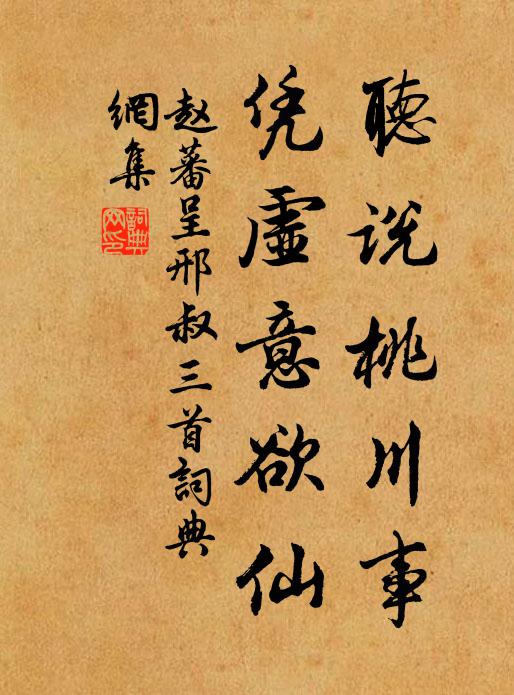 聽説桃川事
凭虛意欲仙
赵蕃呈邢叔三首詞典
網集
詞典網印